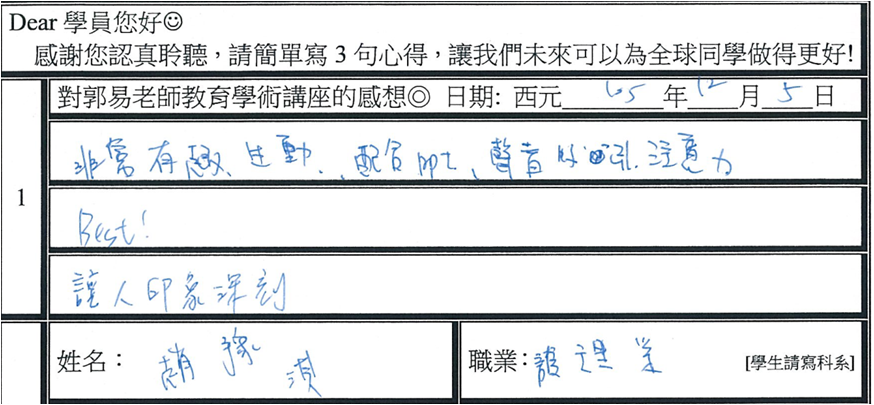 Dear 學員您好☺
感謝您認真聆聽，請簡單寫 3 句心得，讓我們未來可以為全球同學做得更好!
對郭易老師教育學術講座的感想◎ 日期: 西元 05 年 12 月 5 日
1
非常有趣、生動、配合 ppt、聲音 吸引注意力
Best!
讓人印象深刻
姓名： 趙
職業: 護理業 [學生請寫科系]